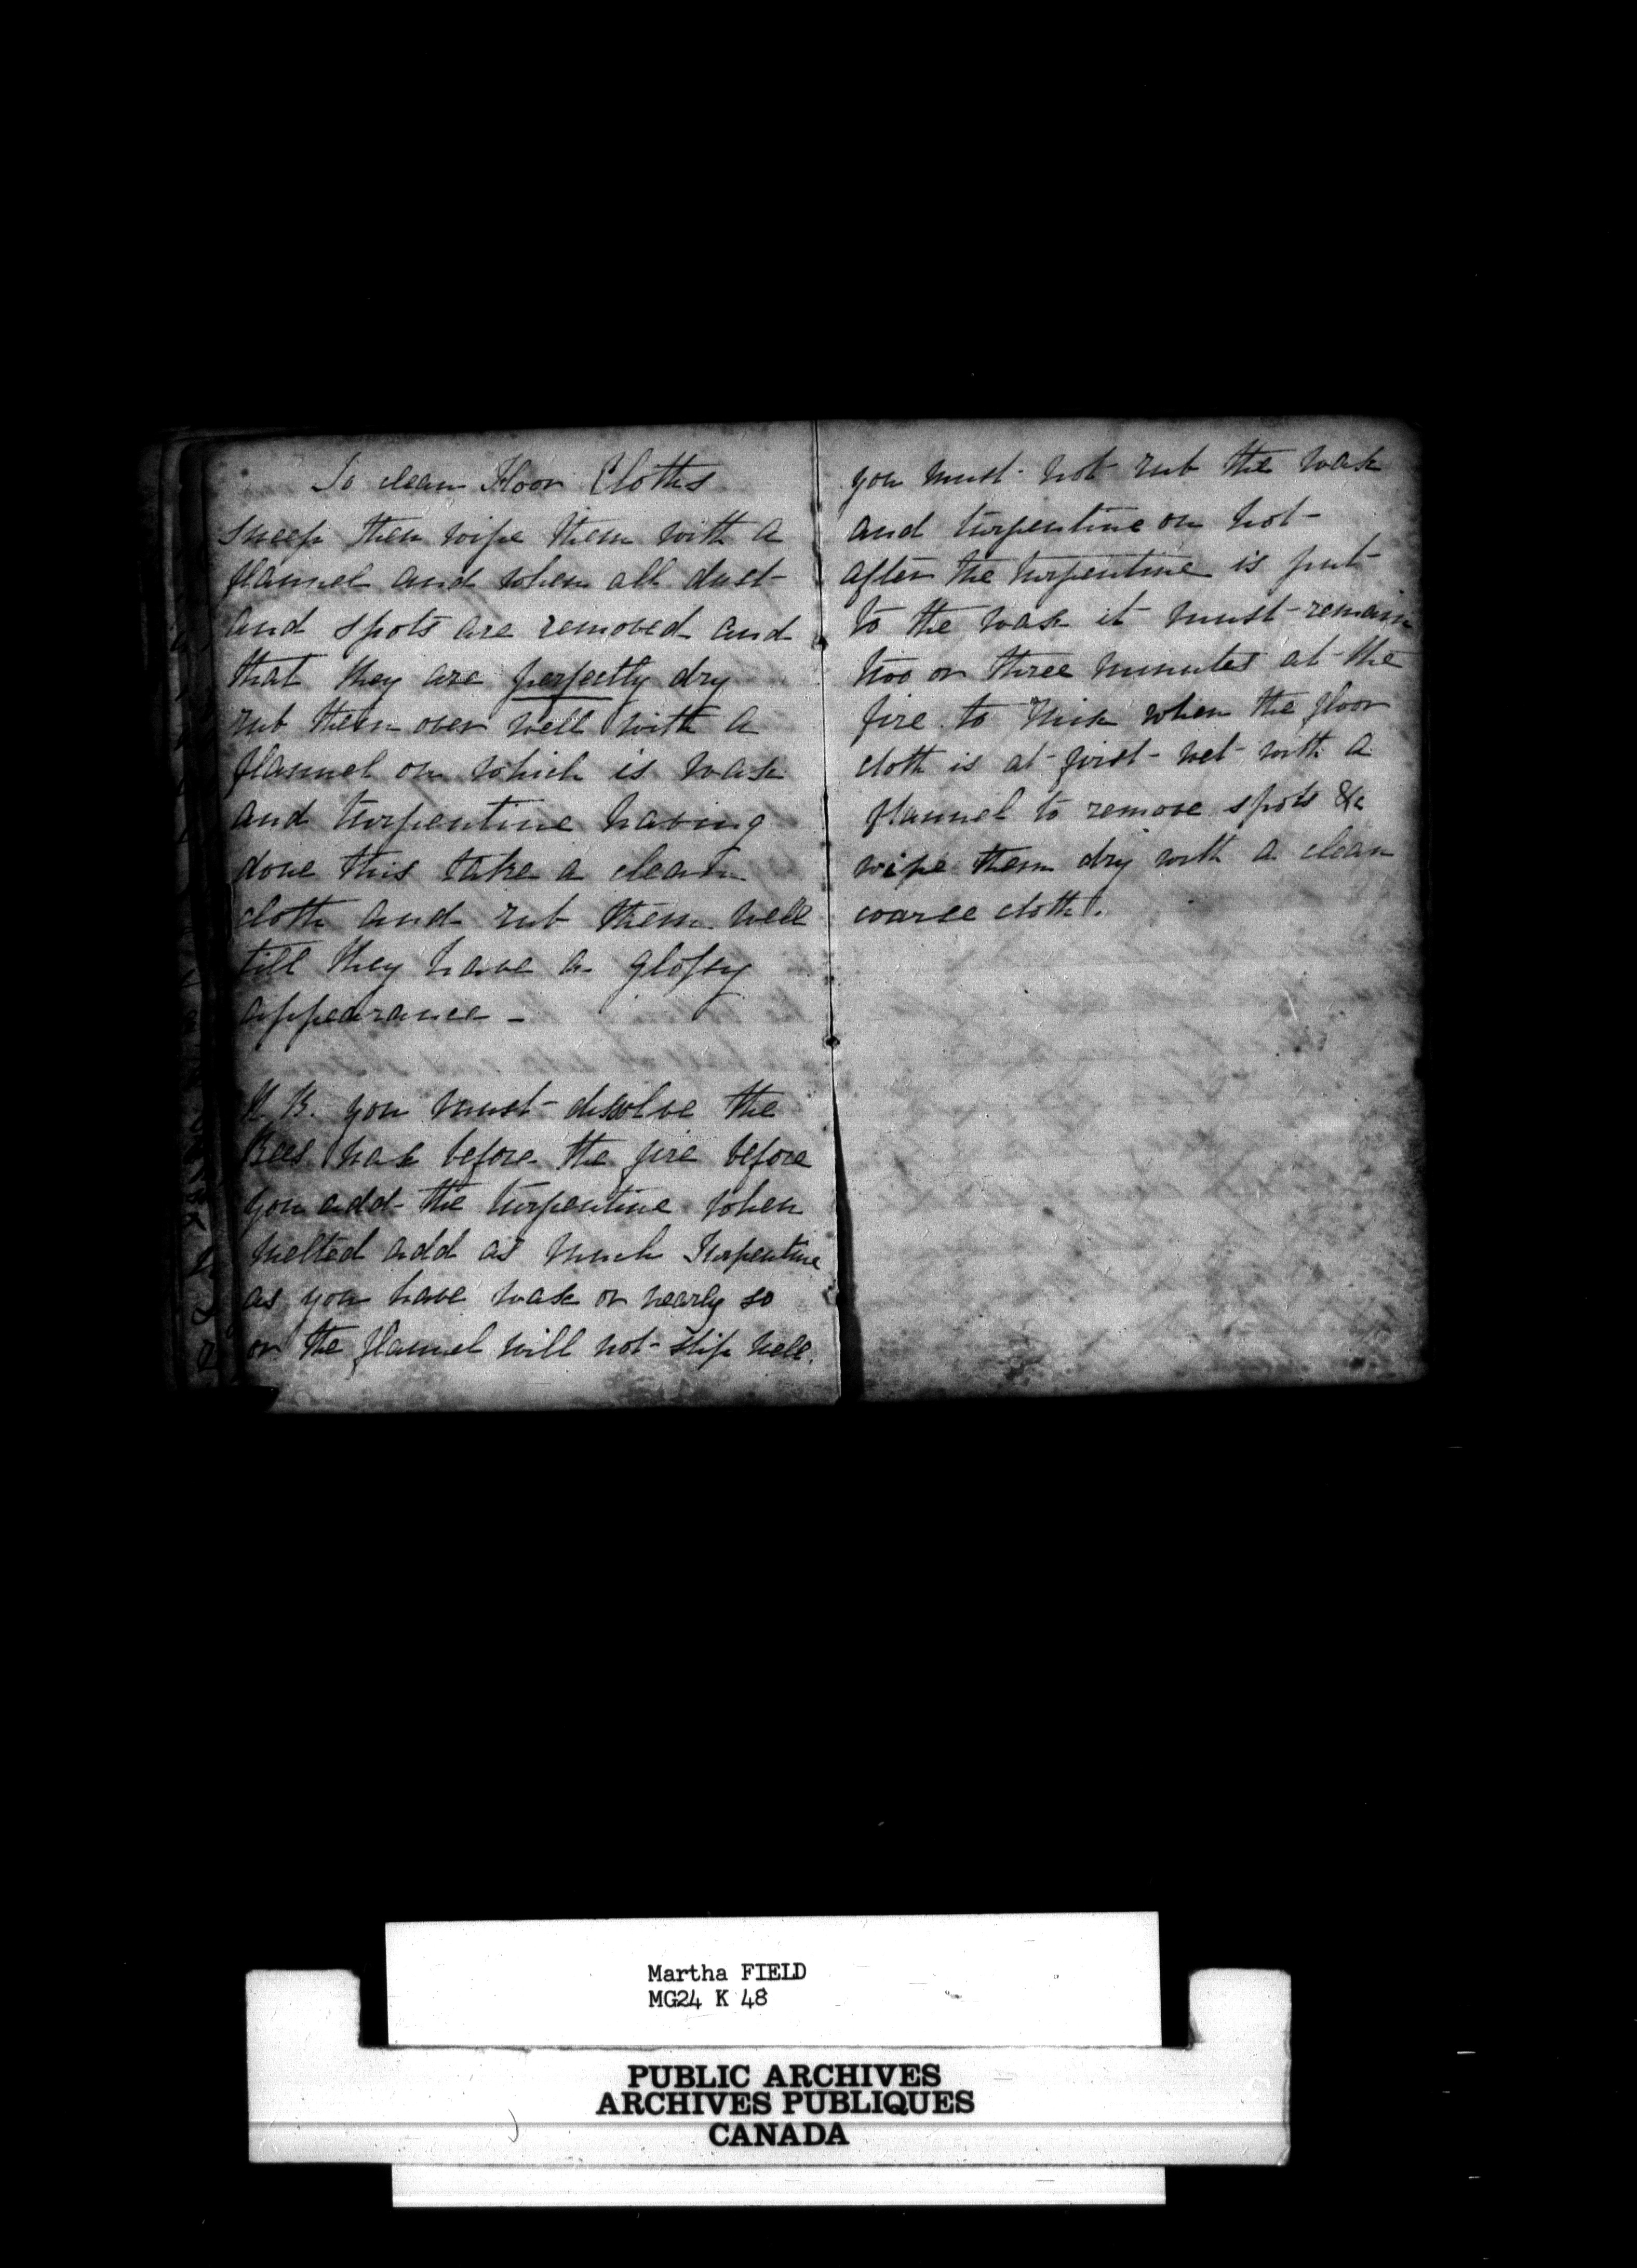 To clean Floor Cloths
sweep then wipe them with a
flannel and when all dust
and spots are removed and
that they are perfectly dry
rub them over well with a
flannel on which is wax
and turpentine having
done this take a clean
cloth and rub them well
till they have a glossy
appearance -
N. B. you must disolve the
Bees wax before the fire before
you add the turpentine when
melted add as much Turpentine
as you have wax or nearly so
or the flannel will not slip well.
you must not rub the wax
and turpentine on hot -
after the turpentine is put
to the wax it must remain
two or three minutes at the
fire to mix when the floor
cloth is at first wet with a
flannel to remove spots &c
wipe them dry with a clean
coarse cloth.
Martha FIELD
MG24 K 48
PUBLIC ARCHIVES
ARCHIVES PUBLIQUES
CANADA